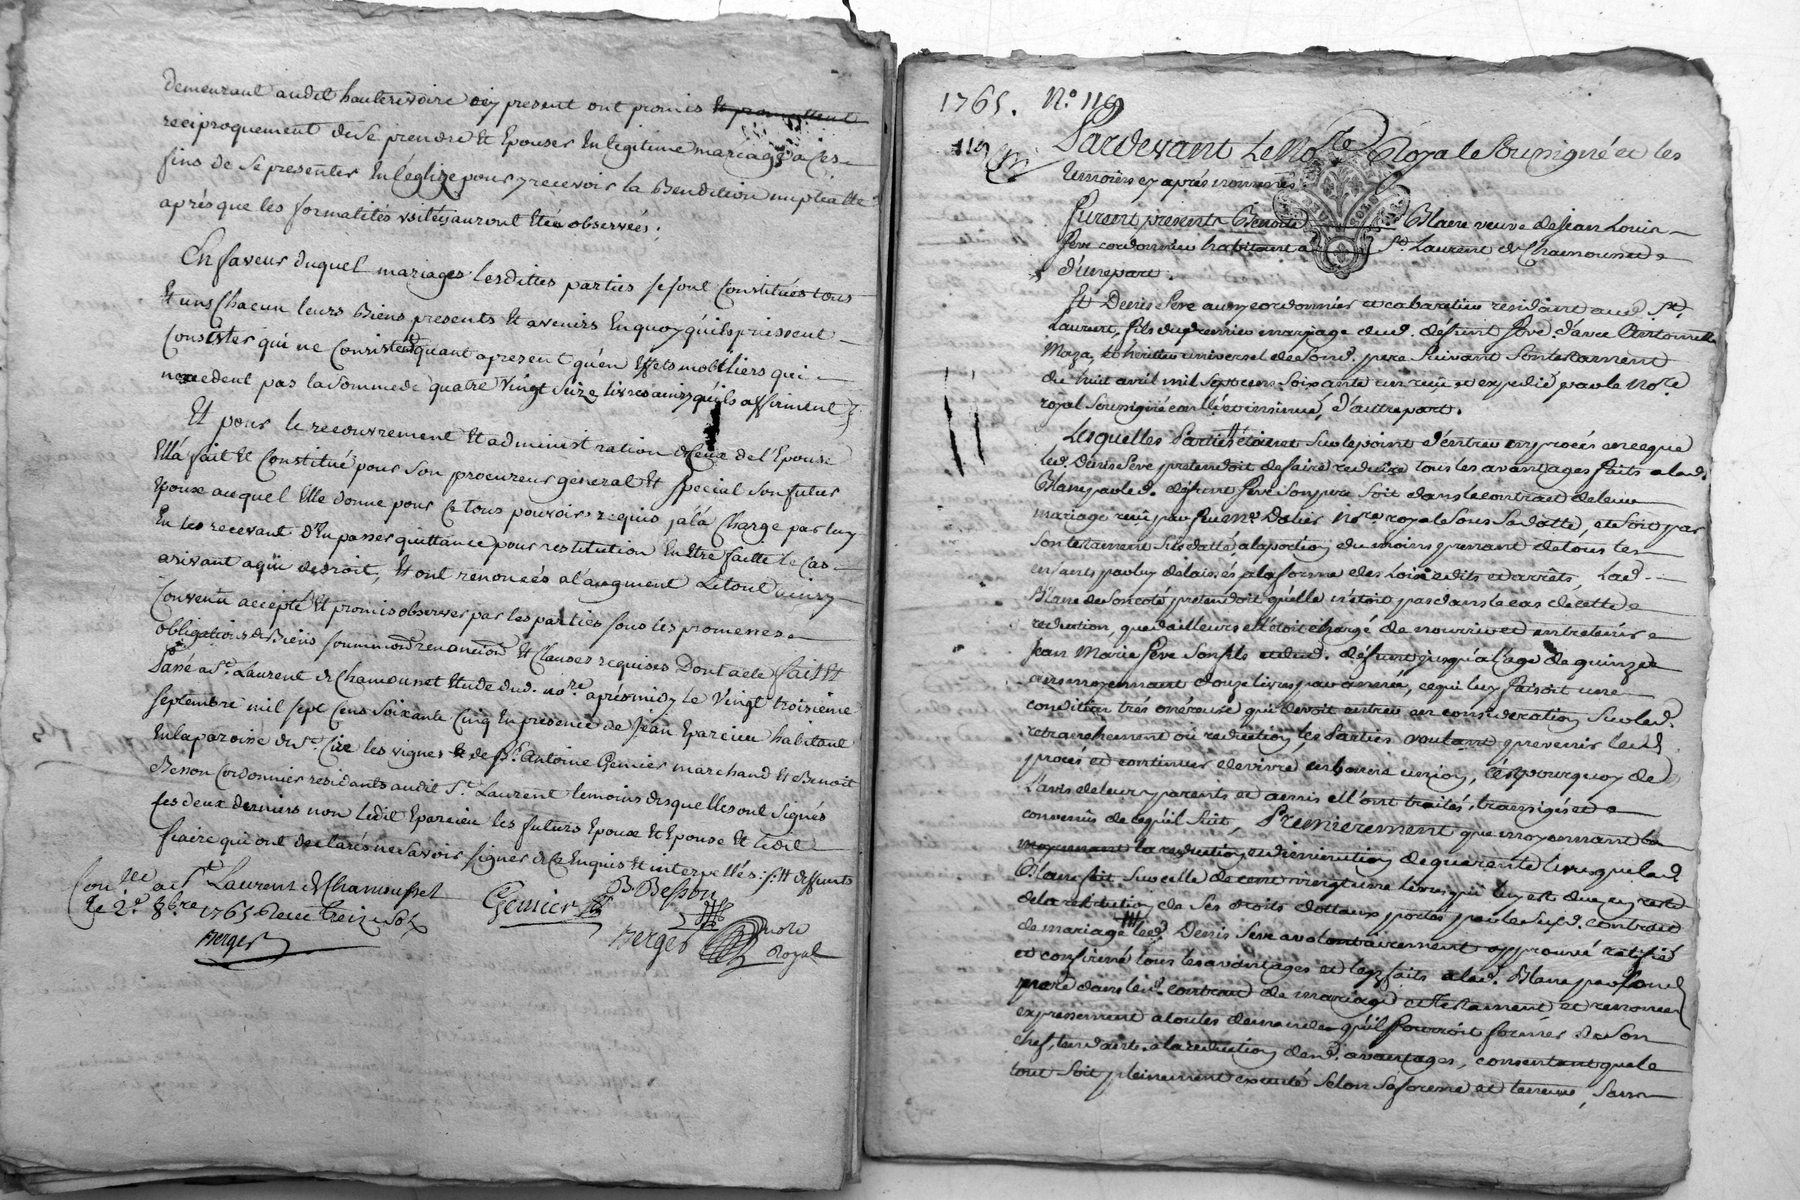 demeurant audit hauterivoire icy present ont promis et promettent
reciproquement de se prendre et Epouser En legitime mariage a ces
fins de se presenter En l'église pour y recevoir la Benediction nuptialle
aprés que les formalités usitéz auront eté observées;
En faveur duquel mariage lesdittes parties se sont Constitués tous
Et uns Chacun leurs Biens presents Et avenirs En quoy qu'ils puissent
Consister qui ne Consistent quant apresent qu'en Effets mobiliers qui
n'excedent pas la somme de quatre Vingt Seize livres ainsy qu'ils affirment
Et pour le recouvrement Et administration de Ceux de l'Epouse
Ella fait Et Constitué pour Son procureur general Et special Son futur
Epoux auquel Elle donne pour Ce tous pouvoirs requis ala Charge par luy
En les recevant d'En passer quittance pour restitution En Etre faitte le Cas
arrivant aqui de droit, Et ont renoncés al'augment Le tout ainsy
Convenu accepté Et promis observer par les parties sous les promesses
obligations de Biens soumissions renonciaons Et Clauses requises Dont acte fait Et
Passé a St. Laurent de Chamousset Etude dud. nore. aprésmidy le Vingt troisieme
septembre mil sept Cens Soixante Cinq En presence de Jean Eparcieu habitant
En la paroisse de St. Cire les vignes de Sr. Antoine Genier marchand Et Benoit
Besson Cordonnier residants audit St. Laurent temoins desquelles ont Signés
les deux derniers non ledit Eparcieu les futurs Epoux Et Epouse Et ledit
fiaire qui ont declarés ne Savoir signer de Ce Enquis Et interpellés
Conllé a St Laurent de Chamousset
le 2e 8bre 1765 Receu treize sols
Berger
Genier
B. Besson
Berger nore Royal
1765. N.o 119
119
Pardevant Le Nore Royal Soussigné et les
temoins cy aprés nommés
Furent presents Benoite Blanc veuve de Jean Louis
Seve cordonnier habitante a St. Laurent de Chamousset
d'une part.
Et Denis Seve aussy cordonnier et cabaretier residant aud. St.
Laurent, fils du premier mariage dud. defunt Seve d'avec Antoinette
Maza, et heritier universel de Sond. pere Suivant Son testament
du huit avril mil Sept cens Soixante un receu et expedié par le Nore
royal Soussigné conllé et insinué, d'autre part.
Lesquelles Parties étoient Sur le point d'entrer en procés en ce que
led. Denis Seve pretendoit de faire reduire tous les avantages faits alad.
Blanc par led. defunt Seve Son pere Soit dans le contract de leur
mariage receu par feu Me. Dalier Nore royal Sous Sa datte, et Soit par
Son testament Susdatté a la portion du moins prenant de tous les
enfants par luy delaissés a la forme des Loix edits et arrêts, Lad.
Blanc de Son coté pretendoit qu'elle n'étoit pas dans le cas de cette
reduction, que d'ailleurs ell'étoit chargé de nourrir et entretenir
Jean Marie Seve Son fils et dud. defunt jusqu'a l'age de quinze
ans moyennant douze livres par année, ce qui luy faisoit une
condition tres onéreuse qui devoit entrer en consideration Sur led.
retranchement ou reduction, les Parties voulant prevenir led.
procés et continuer de vivre en bonne union, c'est pourquoy de
l'avis de leurs parents et amis ell'ont traités, transigés et
convenus de ce qu'il Suit, Premierement que moyennant la
moyennant la reduction et diminution de quarente livres que lad.
Blanc fait Sur celle de cent vingt une livres qui luy est due en reste
de la restitution de Ses droits dottaux portés par le Susd. contract
de mariage led. Denis Seve a volontairement approuvé ratifié
et confirmé tous les avantages et legs faits alad. Blanc par Sond.
pere dans led. contract de mariage et testament et renoncer
expressement a toutes demandes qu'il pourroit former de Son
chef, tendantes a la reduction desd. avantages, consentant que le
tout Soit pleinement executé Selon Sa forme et teneur, Sans